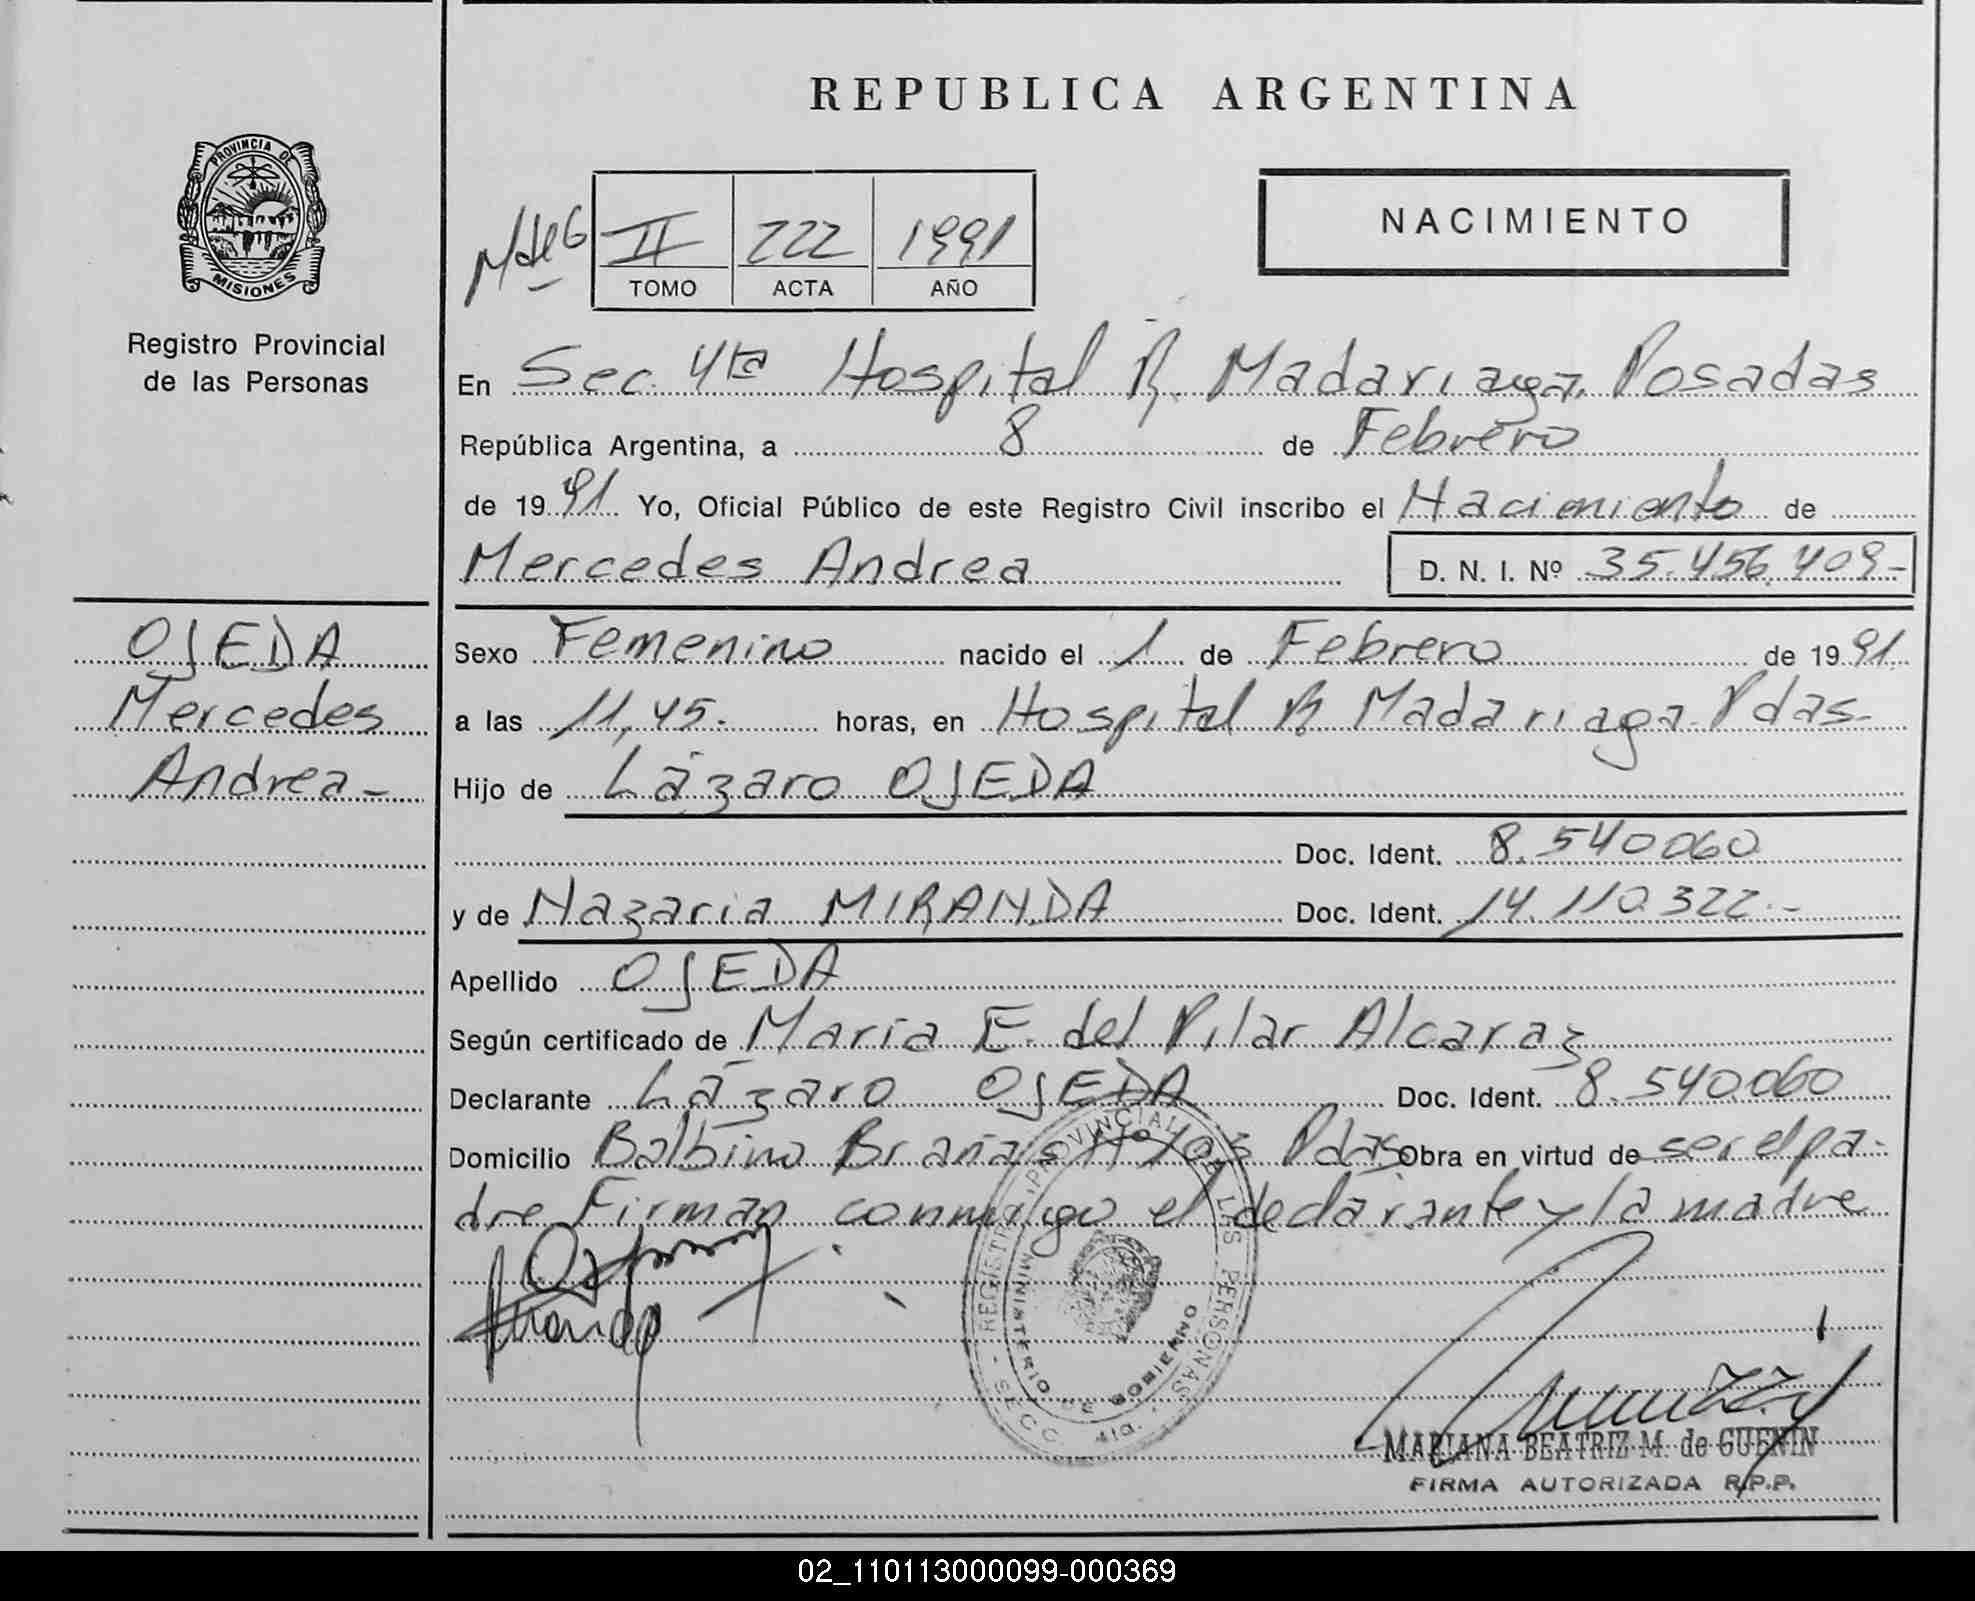 REPUBLICA ARGENTINA
PROVINCIA DE
MISIONES
Registro Provincial
de las Personas
NACIMIENTO
II 222 1991
TOMO ACTA AÑO
En Sec. 4ta Hospital R. Madariaga. Posadas
República Argentina, a 8 de Febrero
de 1991 Yo, Oficial Público de este Registro Civil inscribo el Nacimiento de
Mercedes Andrea D. N. I. Nº 35.456.409-
OJEDA
Mercedes
Andrea-
Sexo Femenino nacido el 1 de Febrero de 1991
a las 11,45. horas, en Hospital R Madariaga. Pdas-
Hijo de Lázaro OJEDA
Doc. Ident. 8.540060
y de Nazaria MIRANDA Doc. Ident. 14.110.322.-
Apellido OJEDA
Según certificado de María E. del Pilar Alcaraz
Declarante Lázaro OJEDA Doc. Ident. 8.540.060
Domicilio Balbino Brañas Pdas Obra en virtud de ser el pa-
dre Firman conmigo el declarante y la madre
REGISTRO PROVINCIAL LAS PERSONAS
MINISTERIO DE GOBIERNO
SECC. 4ta.
MARIANA BEATRIZ M. de GUENIN
FIRMA AUTORIZADA R.P.P.
02_110113000099-000369